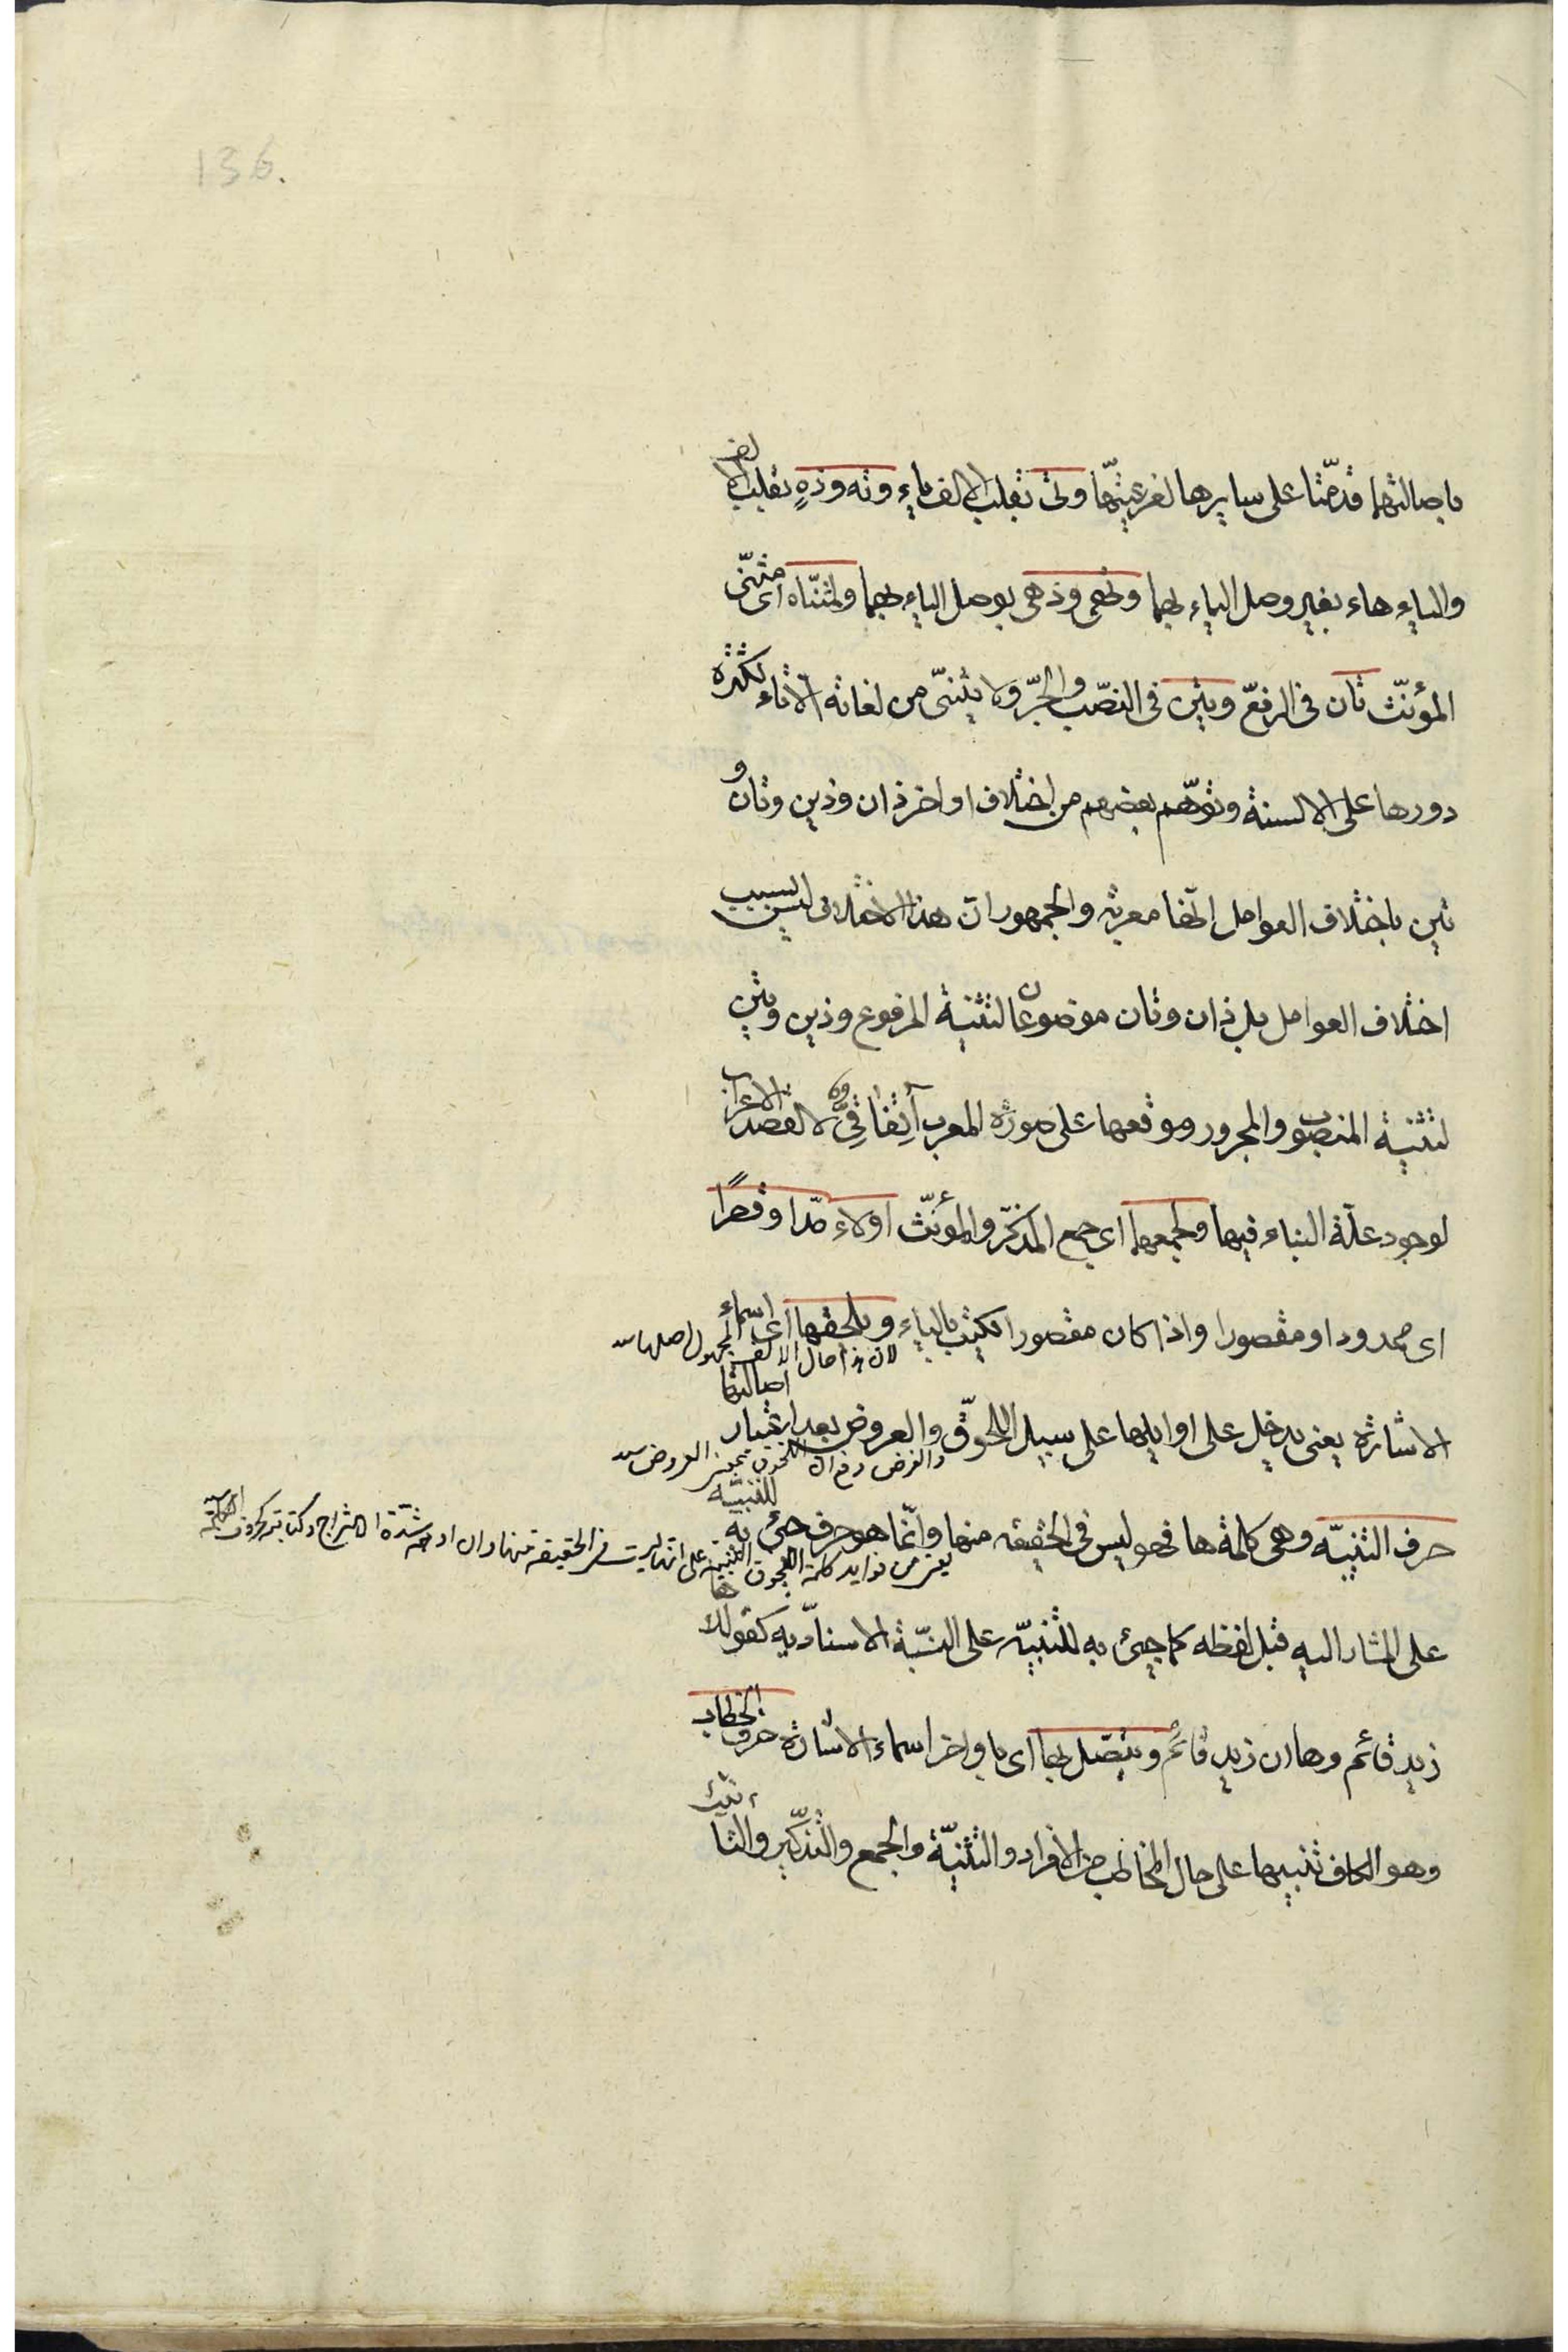 136.
باصالتهما قدمّتا على سايرها لفرعيتهّا وتى بقلب الالف ياء وته وذه بقلب الالف
والياء هاء بغير وصل الياء بهما وتهى وذهى بوصل الياء بهما ولمثنّاه اى مثنّى
المؤنّث تان فى الرفع وتين فى النصب والجرّ ولا يثنىّ من لغاته الّا تاء لكثرة
دورها على الالسنة وتوهّم بعضهم من اختلاف اواخر ذان وذين وتان و
تين باختلاف العوامل انّها معربة والجمهور انّ هذا الاختلاف ليس بسبب
اختلاف العوامل بل ذان وتان موضوعان لتثنية المرفوع وذين وتين
لتثنية المنصوب والمجرور ووقعها على صورة المعرب اتفاقىّ لا لقصد الاعراب
لوجود علّة البناء فيها ولجمعهما اى جمع المذكّر والمؤنّث اولاء مدّا وقصرًا
اى ممدودا او مقصورا واذا كان مقصورا يكتب بالياء ويلحقها اى اسماء
لان هذا حال الالف المجهول اصلها
الاشارة يعنى يدخل على اوايلها على سبيل اللحوق والعروض بعد اعتبار اصالتها
والغرض دفع ان اللحوق بمعنى العروض
حرف التنبيه وهى كلمة ها فهو ليس فى الحقيقه منها وانّما هو حرف جئ به للتنبيه
يعنى من فوايد كلمة اللحوق التنبيه على انها ليست فى الحقيقة منها وان اوهم شدة الامتزاج وكتابته كحروف الكلمة
على المشار اليه قبل لفظه كما جيئ به للتنبيه على النسبة الاسناديه كقولك ها
زيد قائم وها ان زيد قائم ويتصل بها اى باواخر اسماء الاشارة حرف الخطاب
وهو الكاف تنبيها على حال المخاطب من الافراد والتثنية والجمع والتذكير والتانيث